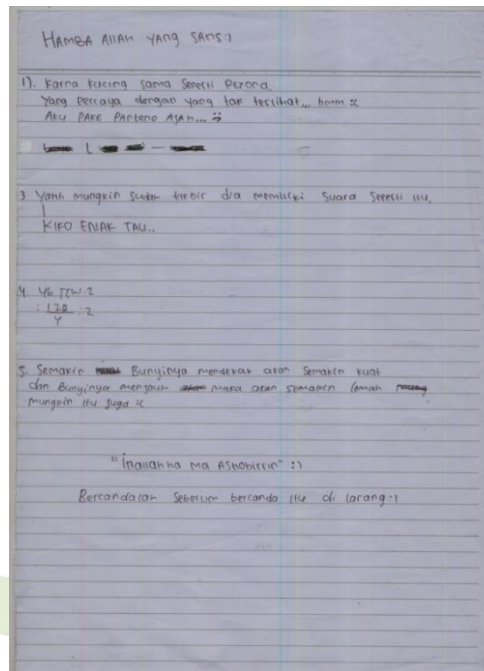 HAMBA AllAH YANG SANS:)
1). Karna kucing sama seperti
Yang Percaya dengan yang tak terlihat... hmm :c
AKU PAKE PANTENO AJAH...
3 Yahh mungkin sudah dia memiliki suara seperti itu.
KIKO ENAK TAU..
4.
:2
5. Semakin Bunyinya mendekat akan semakin kuat
dan Bunyinya menjauh maka akan semakin lemah
mungkin itu juga :c
"Inallahha ma Ashobirrin" :)
Bercandalah sebelum bercanda itu di larang:)